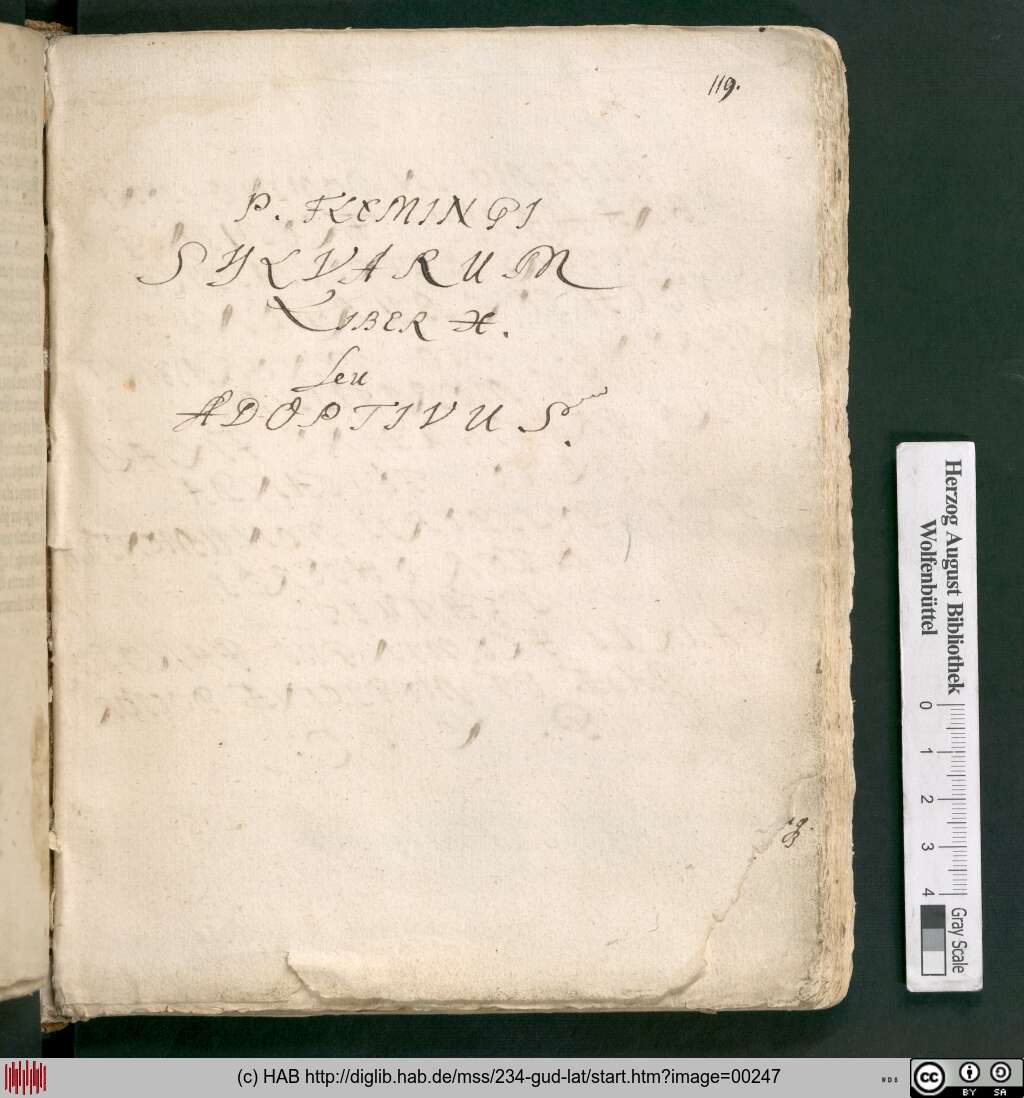 119.
P. FLEMINGI
SYLVARUM
LIBER X.
seu
ADOPTIVUS.
Herzog August Bibliothek
Wolfenbüttel
0 1 2 3 4
Gray Scale
(c) HAB http://diglib.hab.de/mss/234-gud-lat/start.htm?image=00247
cc BY SA